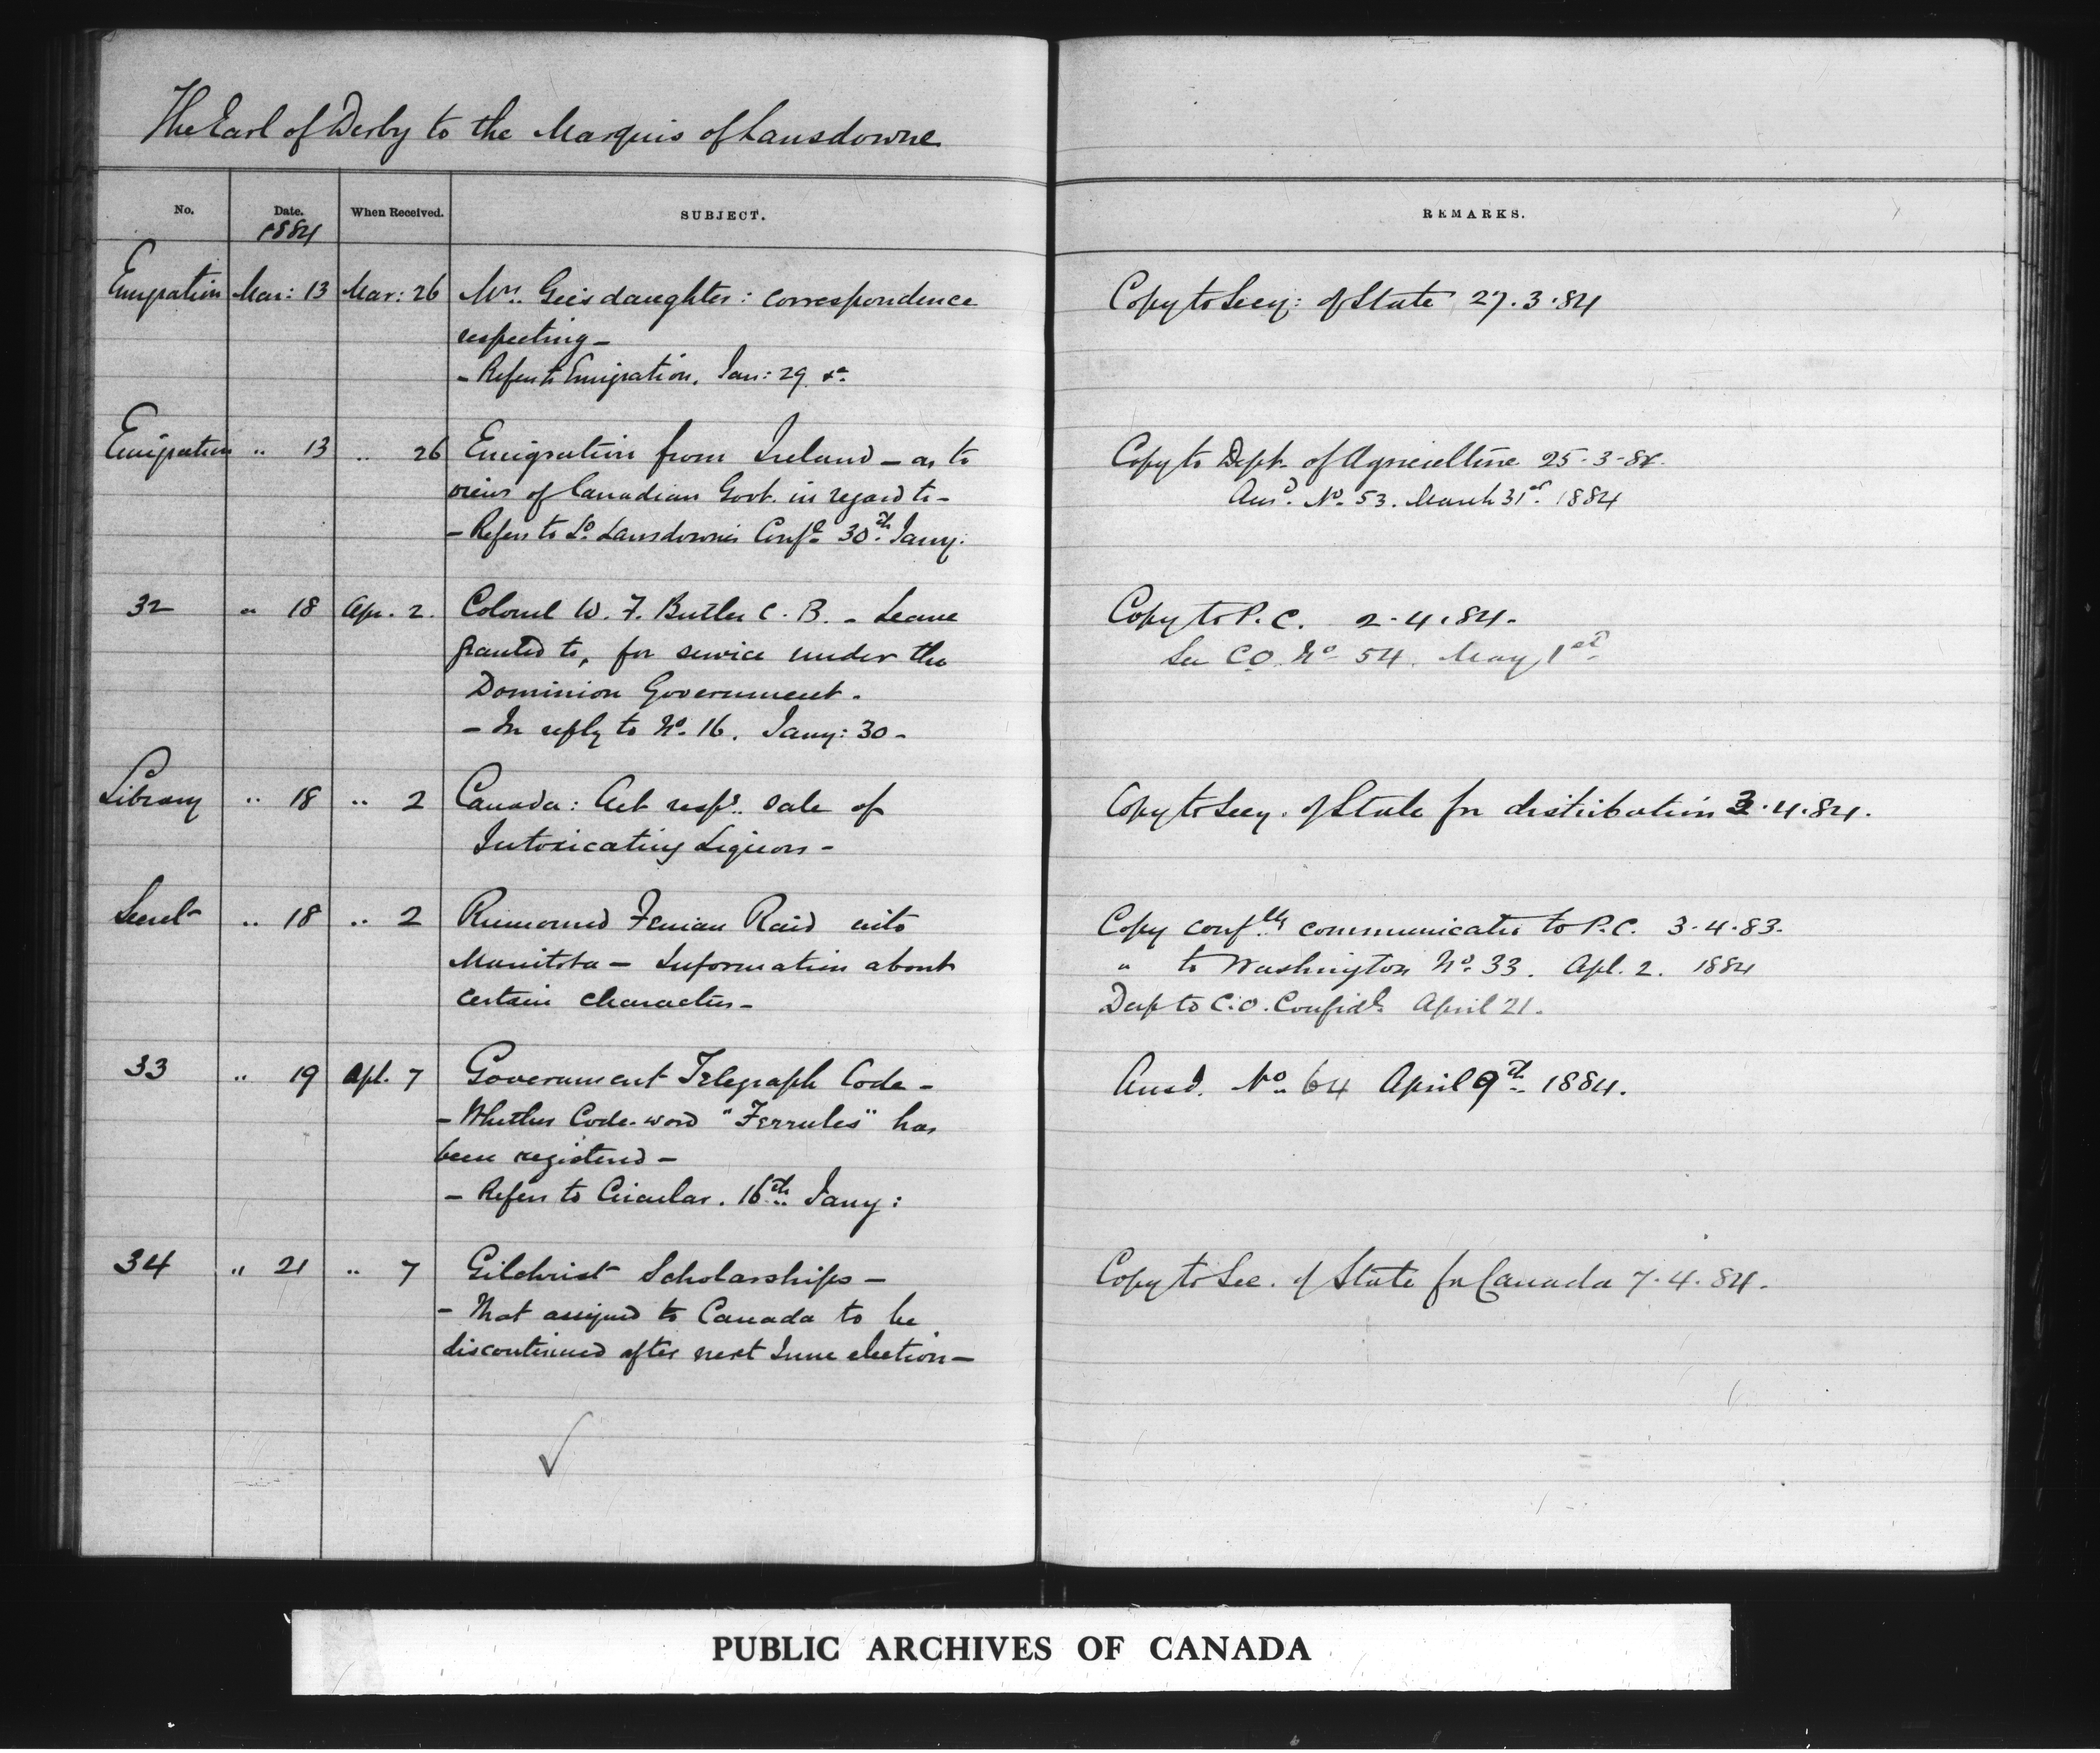 The Earl of Derby to the Marquis of Lansdowne
No. Date. When Received. SUBJECT. REMARKS.
1884
Emigration Mar: 13 Mar: 26 Mrs. Gee's daughter: correspondence Copy to Secy: of State 27.3.84
respecting —
— Refers to Emigration, Jan: 29 &c.
Emigration " 13 " 26 Emigration from Ireland — as to Copy to Dept. of Agriculture 25-3-84.
views of Canadian Govt. in regard to — Ansd. No. 53. March 31st. 1884
— Refers to Ld. Lansdowne's Confdl. 30th. Jany:
32 " 18 Apr. 2. Colonel W. F. Butler C. B. - Leave Copy to P. C. 2-4.84.
granted to, for service under the See C.O. No. 54. May 1st.
Dominion Government.
— In reply to No. 16. Jany: 30 -
Library " 18 " 2 Canada: Act respg. sale of Copy to Secy. of State for distribution 3.4.84.
Intoxicating Liquors -
Secret " 18 " 2 Rumoured Fenian Raid into Copy confly. communicated to P.C. 3-4.83.
Manitoba — Information about " to Washington No. 33. Apl. 2. 1884
certain characters — Desp to C.O. Confidl. April 21.
33 " 19 Apl. 7 Government Telegraph Code - Ansd. No. 64 April 9th. 1884.
— Whether Code-word "Ferrules" has
been registered —
— Refers to Circular. 16th. Jany:
34 " 21 " 7 Gilchrist Scholarships — Copy to Sec. of State for Canada 7.4.84.
- That assigned to Canada to be
discontinued after next June election —
PUBLIC ARCHIVES OF CANADA